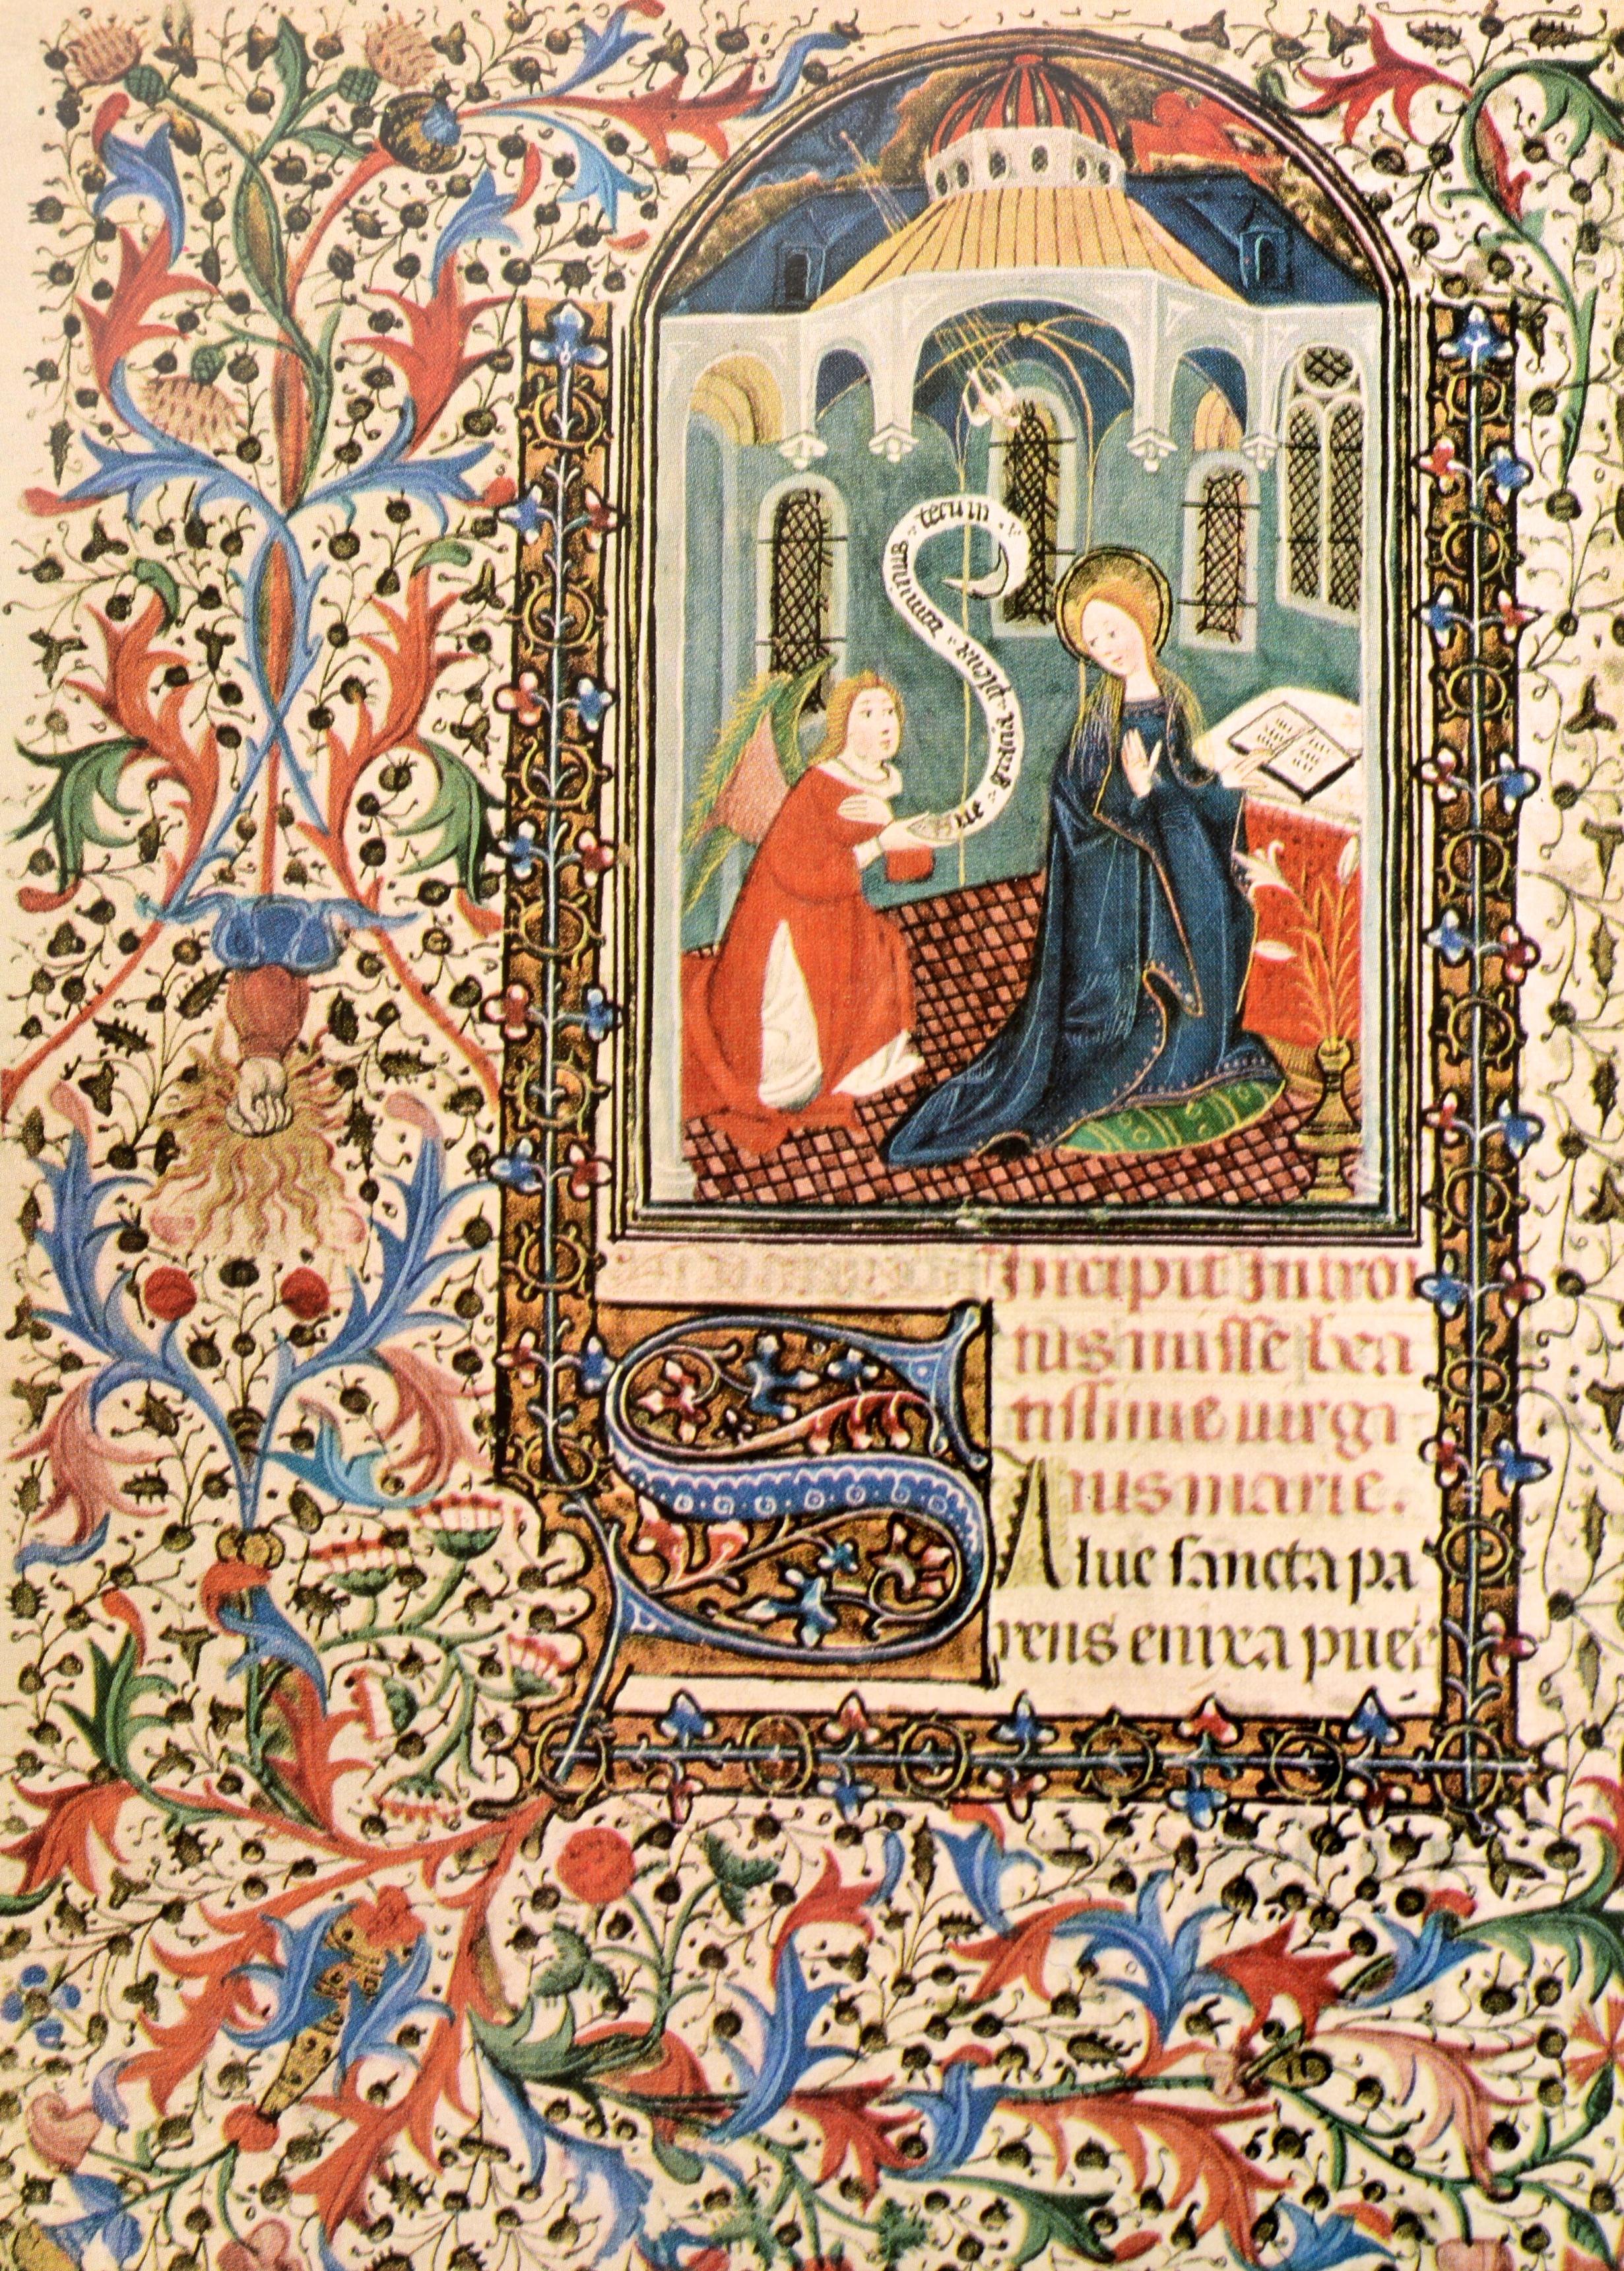 Aue gracia plena dominus tecum
Incipit Introi
tus misse bea
tissime uirgi
nis marie.
SAlue sancta pa
rens enixa puer